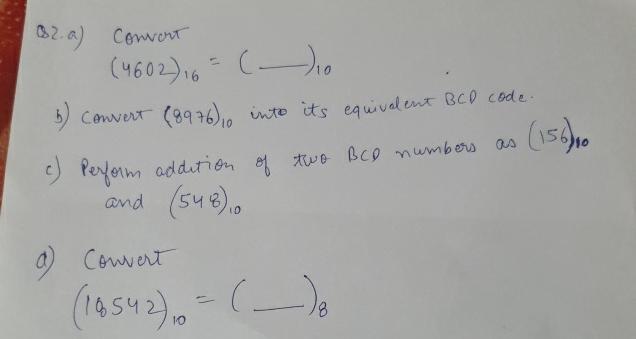 Q2. a) Convert
(4602)₁₆ = ( __ )₁₀
b) Convert (8976)₁₀ into its equivalent BCD code.
c) Perform addition of two BCD numbers as (156)₁₀
and (548)₁₀
d) Convert
(18542)₁₀ = ( __ )₈